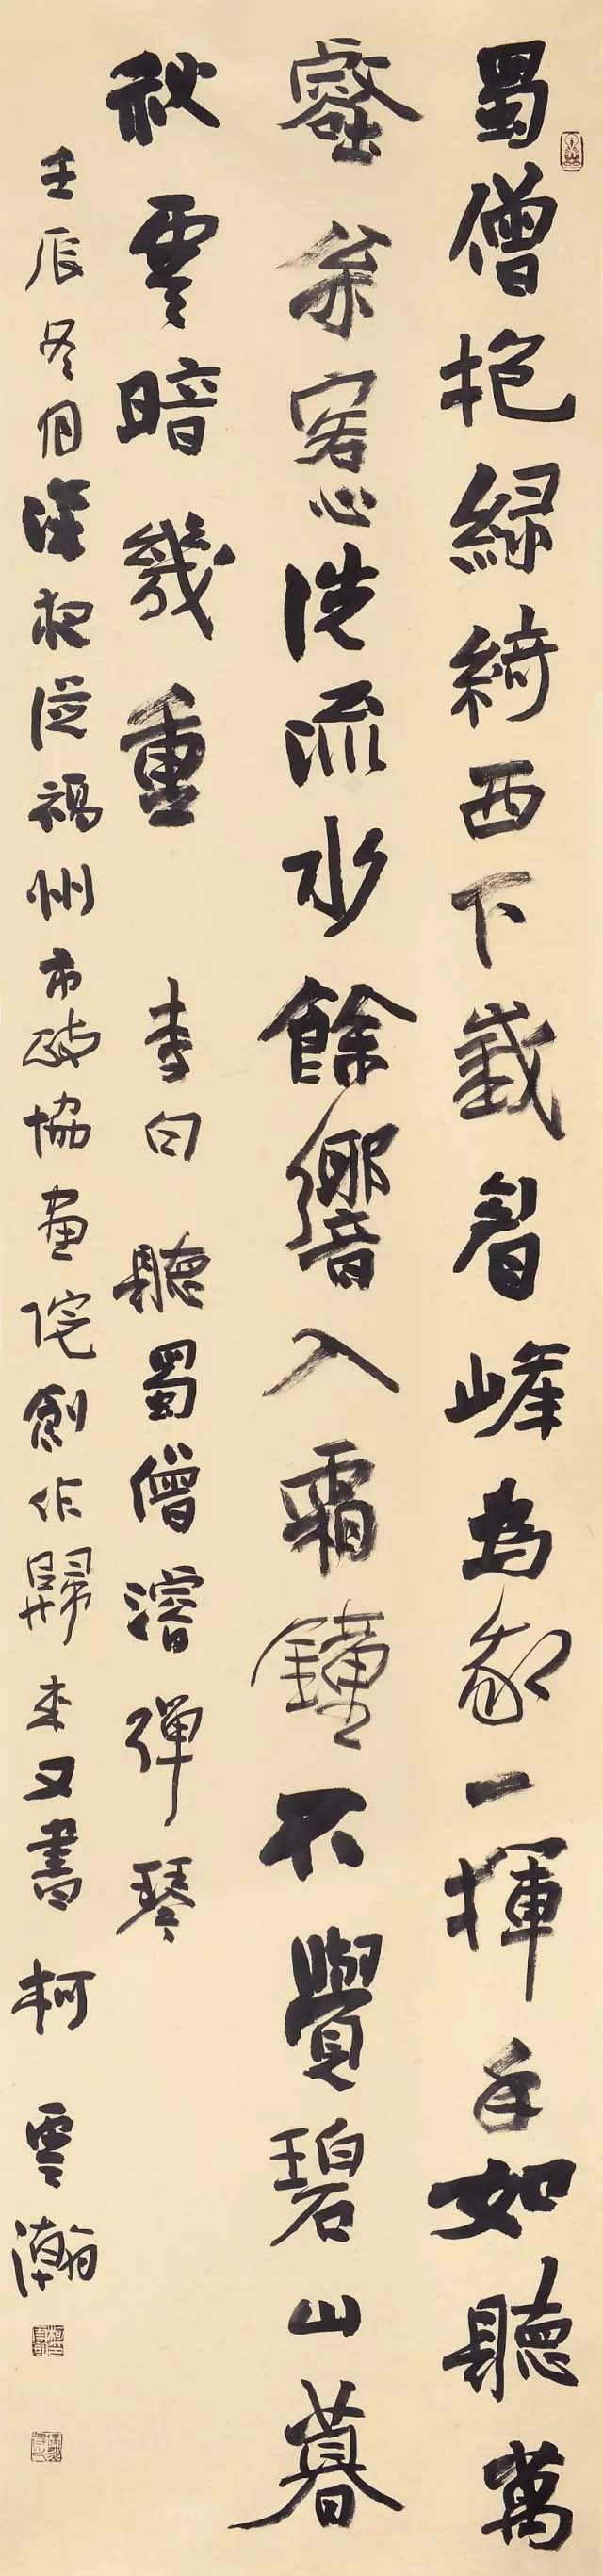 蜀僧抱綠綺西下峨眉峰為我一揮手如聽萬
壑松客心洗流水餘響入霜鐘不覺碧山暮
秋雲暗幾重 李白 聽蜀僧濬彈琴
壬辰冬月深夜從福州市政協畫院創作歸來又書 柯雲瀚